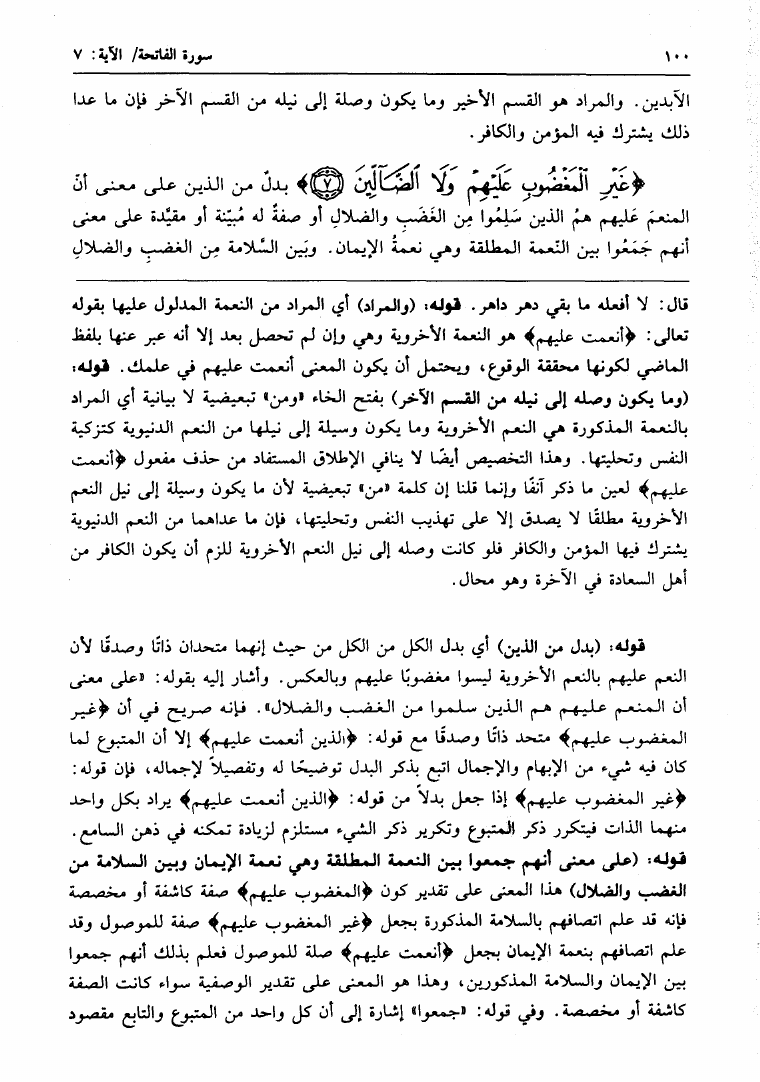 ١٠٠ سورة الفاتحة/ الآية: ٧
الآبدين. والمراد هو القسم الأخير وما يكون وصلة إلى نيله من القسم الآخر فإن ما عدا
ذلك يشترك فيه المؤمن والكافر.
﴿غَيْرِ الْمَغْضُوبِ عَلَيْهِمْ وَلَا الضَّآلِّينَ ﴿٧﴾﴾ بدلٌ من الذين على معنى أنّ
المنعمَ عَليهم همُ الذين سَلِمُوا مِن الغَضَب والضلالِ أو صفةٌ له مُبيّنة أو مقيَّدة على معنى
أنهم جَمَعُوا بين النّعمة المطلقة وهي نعمةُ الإيمان. وبَين السَّلامة مِن الغضبِ والضلالِ
قال: لا أفعله ما بقي دهر داهر. قوله: (والمراد) أي المراد من النعمة المدلول عليها بقوله
تعالى: ﴿أنعمت عليهم﴾ هو النعمة الأخروية وهي وإن لم تحصل بعد إلا أنه عبر عنها بلفظ
الماضي لكونها محققة الوقوع، ويحتمل أن يكون المعنى أنعمت عليهم في علمك. قوله:
(وما يكون وصله إلى نيله من القسم الآخر) بفتح الخاء «ومن» تبعيضية لا بيانية أي المراد
بالنعمة المذكورة هي النعم الأخروية وما يكون وسيلة إلى نيلها من النعم الدنيوية كتزكية
النفس وتحليتها. وهذا التخصيص أيضًا لا ينافي الإطلاق المستفاد من حذف مفعول ﴿أنعمت
عليهم﴾ لعين ما ذكر آنفًا وإنما قلنا إن كلمة «من» تبعيضية لأن ما يكون وسيلة إلى نيل النعم
الأخروية مطلقًا لا يصدق إلا على تهذيب النفس وتحليتها، فإن ما عداهما من النعم الدنيوية
يشترك فيها المؤمن والكافر فلو كانت وصله إلى نيل النعم الأخروية للزم أن يكون الكافر من
أهل السعادة في الآخرة وهو محال.
قوله: (بدل من الذين) أي بدل الكل من الكل من حيث إنهما متحدان ذاتًا وصدقًا لأن
النعم عليهم بالنعم الأخروية ليسوا مغضوبًا عليهم وبالعكس. وأشار إليه بقوله: «على معنى
أن المنعم عليهم هم الذين سلموا من الغضب والضلال». فإنه صريح في أن ﴿غير
المغضوب عليهم﴾ متحد ذاتًا وصدقًا مع قوله: ﴿الذين أنعمت عليهم﴾ إلا أن المتبوع لما
كان فيه شيء من الإبهام والإجمال اتبع بذكر البدل توضيحًا له وتفصيلاً لإجماله، فإن قوله:
﴿غير المغضوب عليهم﴾ إذا جعل بدلاً من قوله: ﴿الذين أنعمت عليهم﴾ يراد بكل واحد
منهما الذات فيتكرر ذكر المتبوع وتكرير ذكر الشيء مستلزم لزيادة تمكنه في ذهن السامع.
قوله: (على معنى أنهم جمعوا بين النعمة المطلقة وهي نعمة الإيمان وبين السلامة من
الغضب والضلال) هذا المعنى على تقدير كون ﴿المغضوب عليهم﴾ صفة كاشفة أو مخصصة
فإنه قد علم اتصافهم بالسلامة المذكورة بجعل ﴿غير المغضوب عليهم﴾ صفة للموصول وقد
علم اتصافهم بنعمة الإيمان بجعل ﴿أنعمت عليهم﴾ صلة للموصول فعلم بذلك أنهم جمعوا
بين الإيمان والسلامة المذكورين، وهذا هو المعنى على تقدير الوصفية سواء كانت الصفة
كاشفة أو مخصصة. وفي قوله: «جمعوا» إشارة إلى أن كل واحد من المتبوع والتابع مقصود